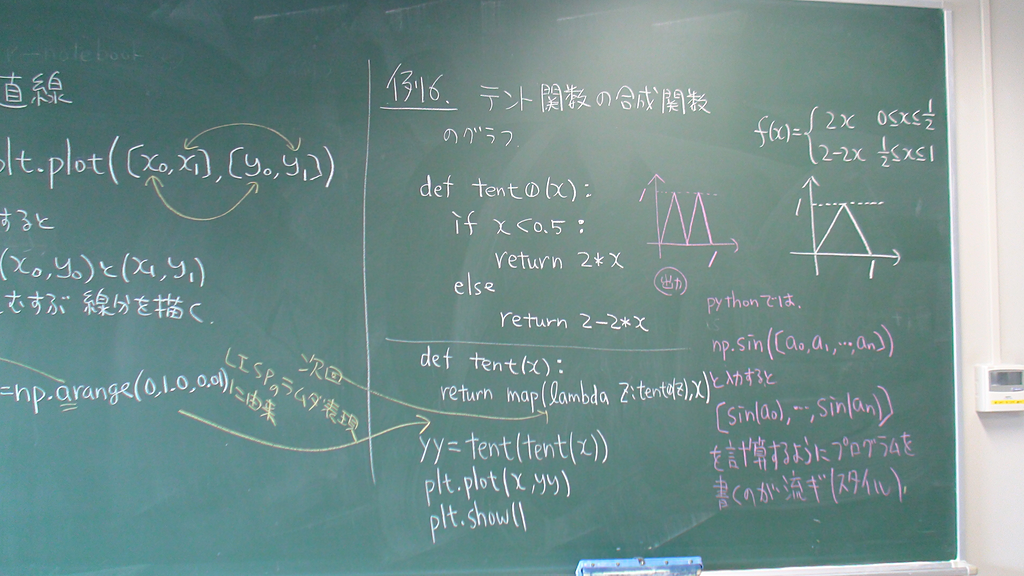 直線
plt.plot([x₀,x₁],[y₀,y₁])
すると
(x₀,y₀)と(x₁,y₁)
むすぶ 線分を描く.
=np.arange(0,1.0,0.01)
LISP
のラムダ表現
に由来
次回
例6.
テント関数の合成関数
のグラフ.
def tent0(x):
if x<0.5:
return 2*x
else
return 2-2*x
def tent(x):
return map(lambda z:tent0(z),x)
yy=tent(tent(x))
plt.plot(x,yy)
plt.show()
1
1
出力
f(x)={2x 0≤x≤1/2
2-2x 1/2≤x≤1
1
1
pythonでは.
np.sin([a₀,a₁,…,aₙ])
と効すると
[sin(a₀),…,sin(aₙ)]
を計算するようにプログラムを
書くのが流ギ(スタイル).